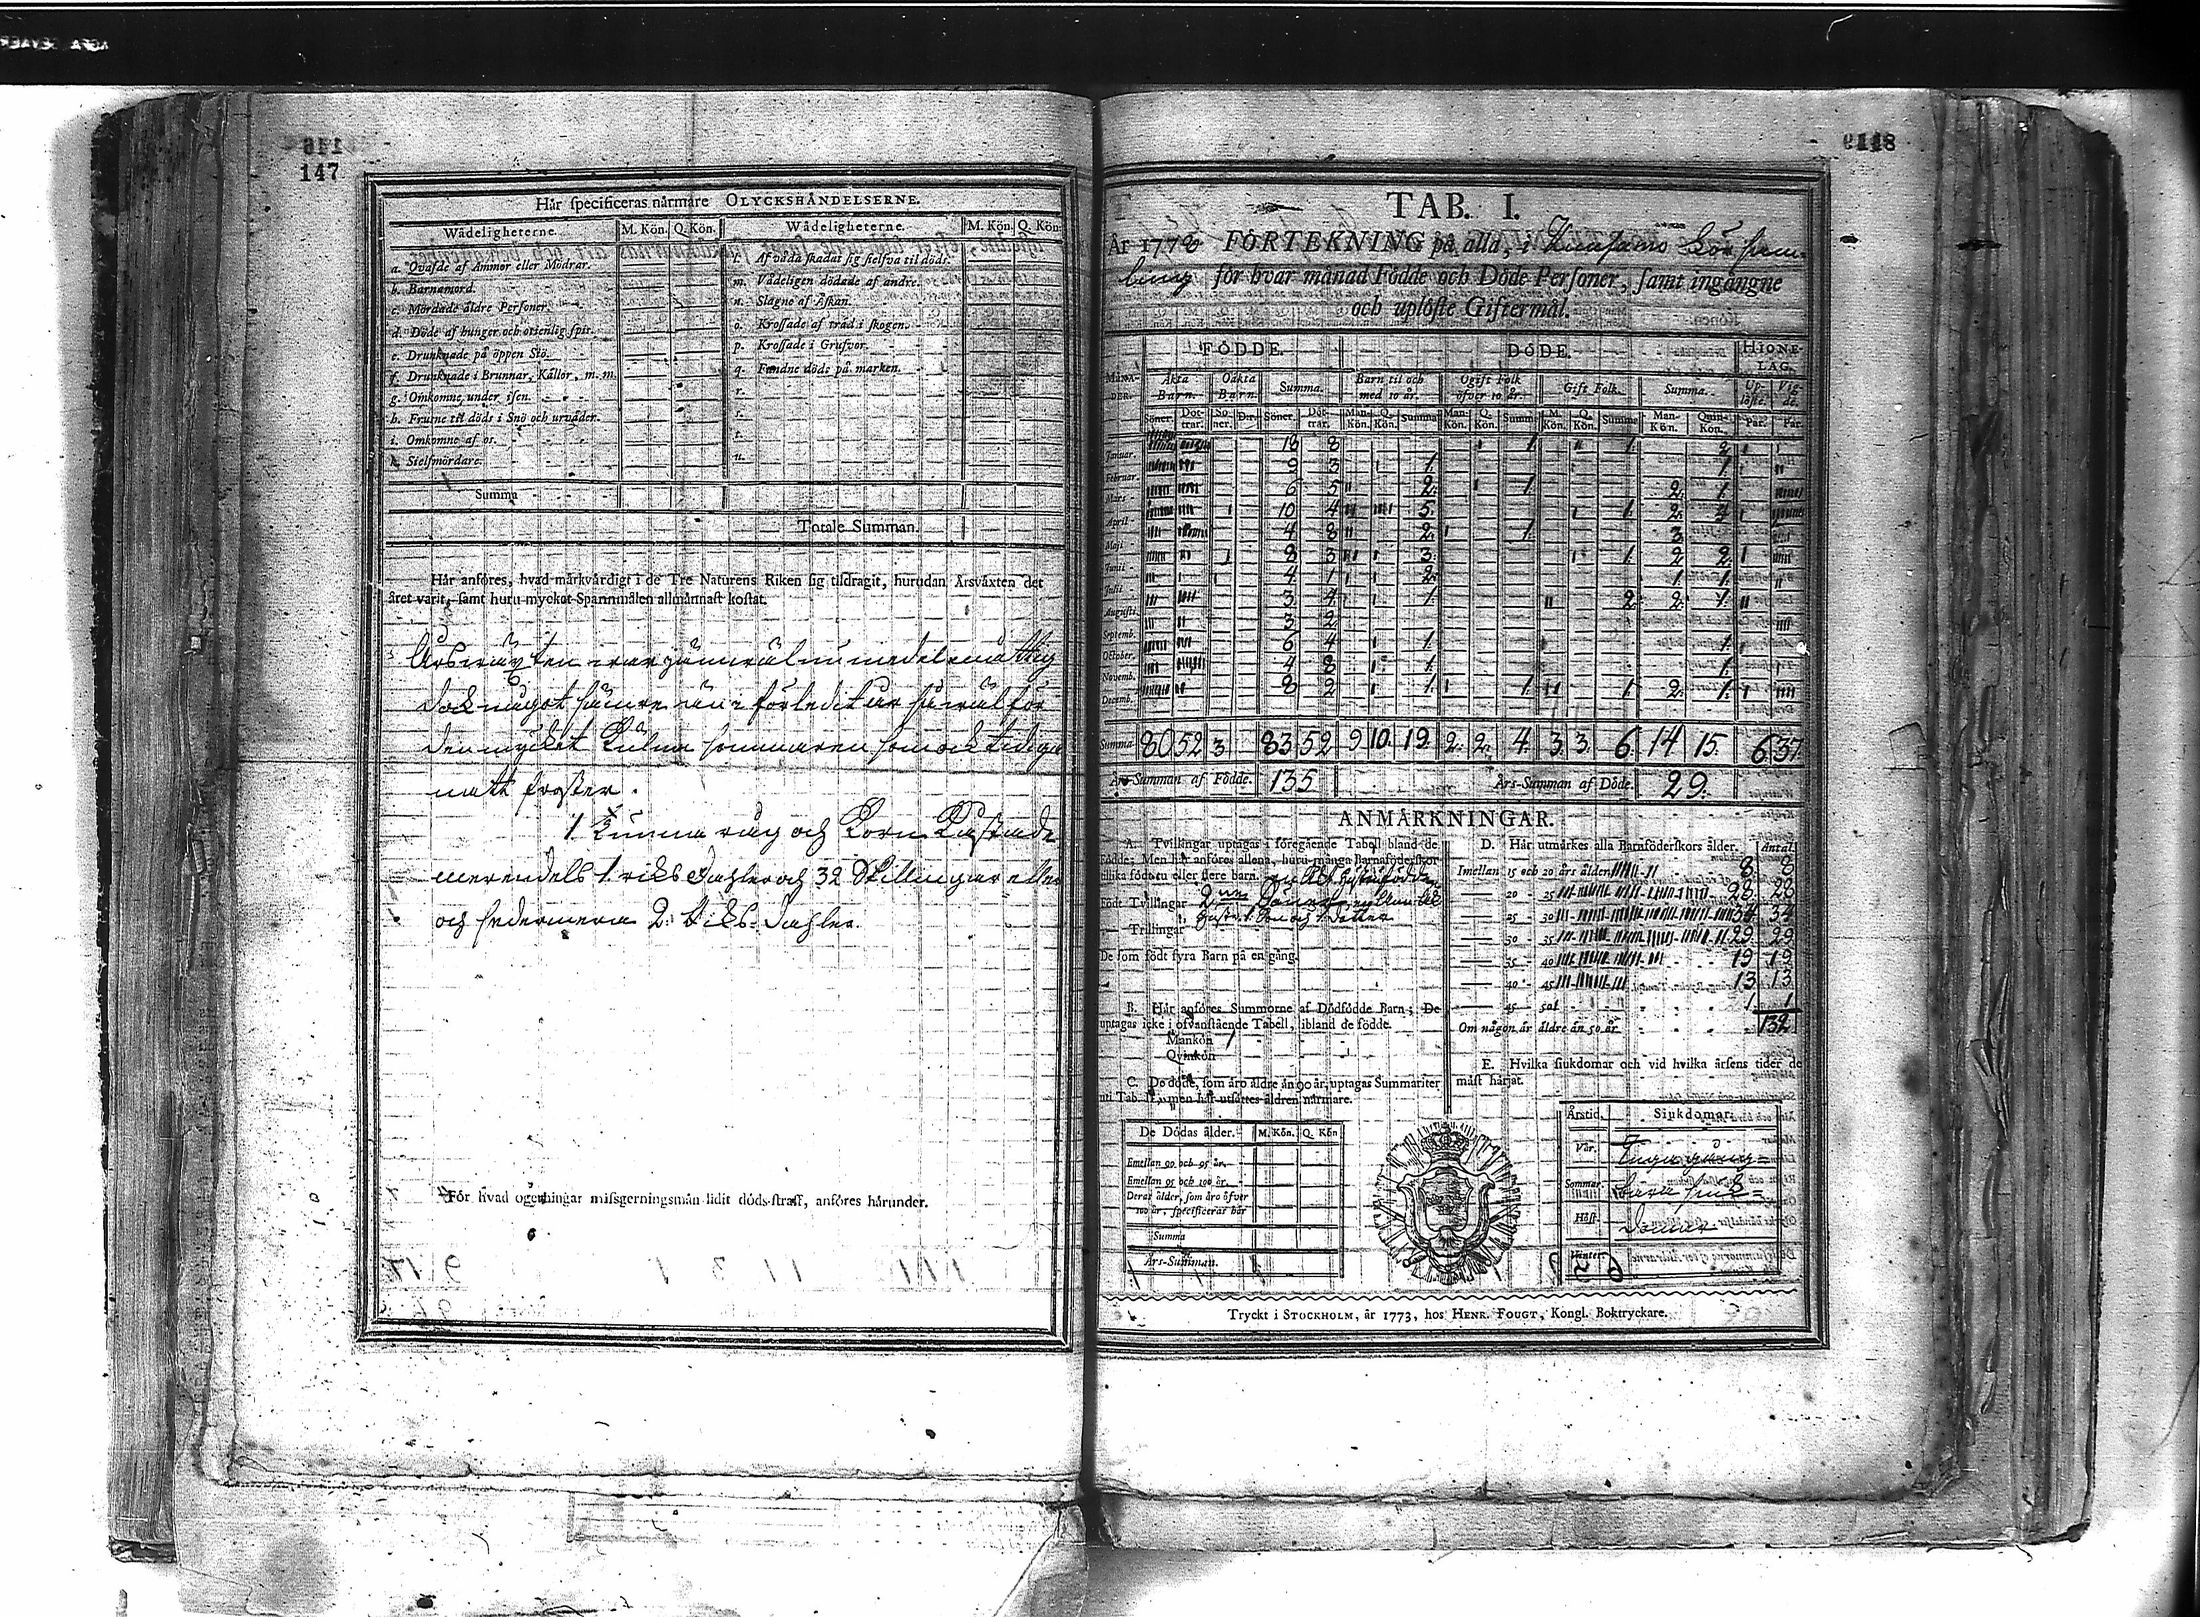 147
Här specificeras närmare OLYCKSHÄNDELSERNE.
Wådeligheterne. M. Kön. Q. Kön. Wådeligheterne. M. Kön. Q. Kön
a. Qvafde af Ammor eller Mödrar.
b. Barnamord.
c. Mördade äldre Personer.
d. Döde af hunger och otienlig spis.
e. Drunknade på öppen Siö.
f. Drunknade i Brunnar, Källor, m. m.
g. Omkomne under isen.
h. Frusne til döds i Snö och urväder.
i. Omkomne af os.
k. Sielfmördare.
l. Af våda skadat sig sielfva til döds.
m. Vådeligen dödade af andre.
n. Slagne af Åskan.
o. Krossade af träd i skogen.
p. Krossade i Grufvor.
q. Fundne döde på marken.
r.
s.
t.
u.
Summa
Totale Summan.
Här anföres, hvad märkvärdigt i de Tre Naturens Riken sig tildragit, hurudan Årsväxten det
året varit, samt huru mycket Spannmålen allmännast kostat.
Årswäxten war jämwäl nu medelmåttig
dock något sämre än i förledit år såwäl för
den mycket kulna sommaren som ock tidiga
natt froster.
1 Tunna råg och Korn kostade
merendels 1. riks daler och 32 Skillingar eller
och sedermera 2. Riks daler.
För hvad ogerningar missgerningsmän lidit döds-straff, anföres härunder.
148
TAB. I.
År 1778 FÖRTEKNING på alla, i Kumo Församling
för hvar månad Födde och Döde Personer, samt ingångne
och uplöste Giftermål.
FÖDDE. DÖDE. HIONE-
LAG.
MÅNA-
DER. Äkta
Barn. Oäkta
Barn. Summa. Barn til och
med 10 år. Ogift Folk
öfver 10 år. Gift Folk. Summa. Up-
löste. Vig-
de.
Januar. 18 8 1. 1. 2
Februar. 9 3 1. 1.
Mars 6 5 2. 1. 2. 1.
April 10 4 5. 1. 2. 4
Maji 4 8 2. 1. 3
Junii 8 3 3. 1. 2 2.
Julii 4. 1 2. 1 1.
Augusti 3. 4 1. 2. 2. 1.
Septemb. 3 2
October. 6 4 1. 1.
Novemb. 4 8 1. 1.
Decemb. 8 2 1. 1. 1. 2. 1.
Summa 80 52 3. 83 52 9. 10. 19. 2. 2. 4. 3. 3. 6. 14 15. 6. 37.
Års-Summan af Födde. 135 Års-Summan af Döde. 29.
ANMÄRKNINGAR.
A. Tvillingar uptagas i föregående Tabell bland de
Födde; Men här anföres allena, huru många Barnaföderskor
tillika födt tu eller flere barn.
Födt Tvillingar 2
Trillingar
De som födt fyra Barn på en gång.
B. Här anföres Summorne af Dödfödde Barn; De
uptagas icke i ofvanstående Tabell, ibland de födde.
Mankön 1
Qvinkön
C. De döde, som äro äldre än 90 år, uptagas Summariter
uti Tab. II., men här utsättes åldren närmare.
De Dödas ålder. M. Kön. Q. Kön
Emellan 90 och 95 år.
Emellan 95 och 100 år.
Deras ålder, som äro öfver
100 år, specificeras här
Summa
Års-Summan.
D. Här utmärkes alla Barnföderskors ålder. Antal.
Imellan 15 och 20 års ålder 8. 8
20 - 25 28. 28
25 - 30 34 34
30 - 35 29 29
35 - 40 19 19
40 - 45 13 13
45 - 50 1. 1
Om någon är äldre än 50 år. 132
E. Hvilka siukdomar och vid hvilka årsens tider de
mäst härjat.
Årstid. Siukdomar.
Vår. Inga gång-
Sommar. bara siuk-
Höst. domar
Vinter.
Tryckt i STOCKHOLM, år 1773, hos HENR. FOUGT, Kongl. Boktryckare.